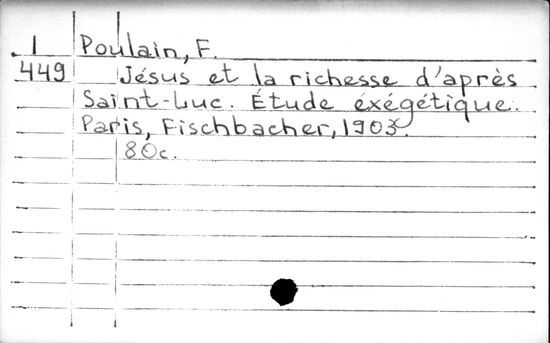 I Poulain, F.
449 Jésus et la richesse d'après
Saint-Luc. Étude exégétique.
Paris, Fischbacher, 1903.
80c.